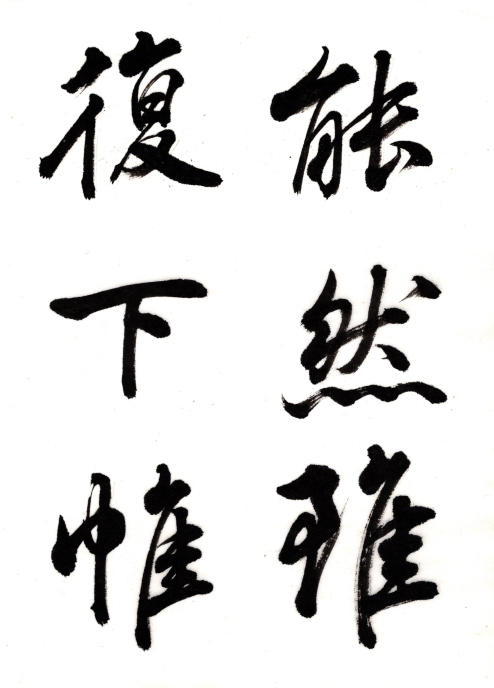 能然雖
復下帷